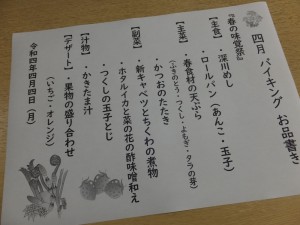 四月 バイキング お品書き
『春の味覚祭』
【主食】・深川めし
・ロールパン（あんこ・玉子）
【主菜】・春食材の天ぷら
（ふきのとう・つくし・よもぎ・タラの芽）
・かつおのたたき
【副菜】・新キャベツとちくわの煮物
・ホタルイカと菜の花の酢味噌和え
・つくしの玉子とじ
【汁物】・かきたま汁
【デザート】・果物の盛り合わせ
（いちご・オレンジ）
令和四年四月四日（月）